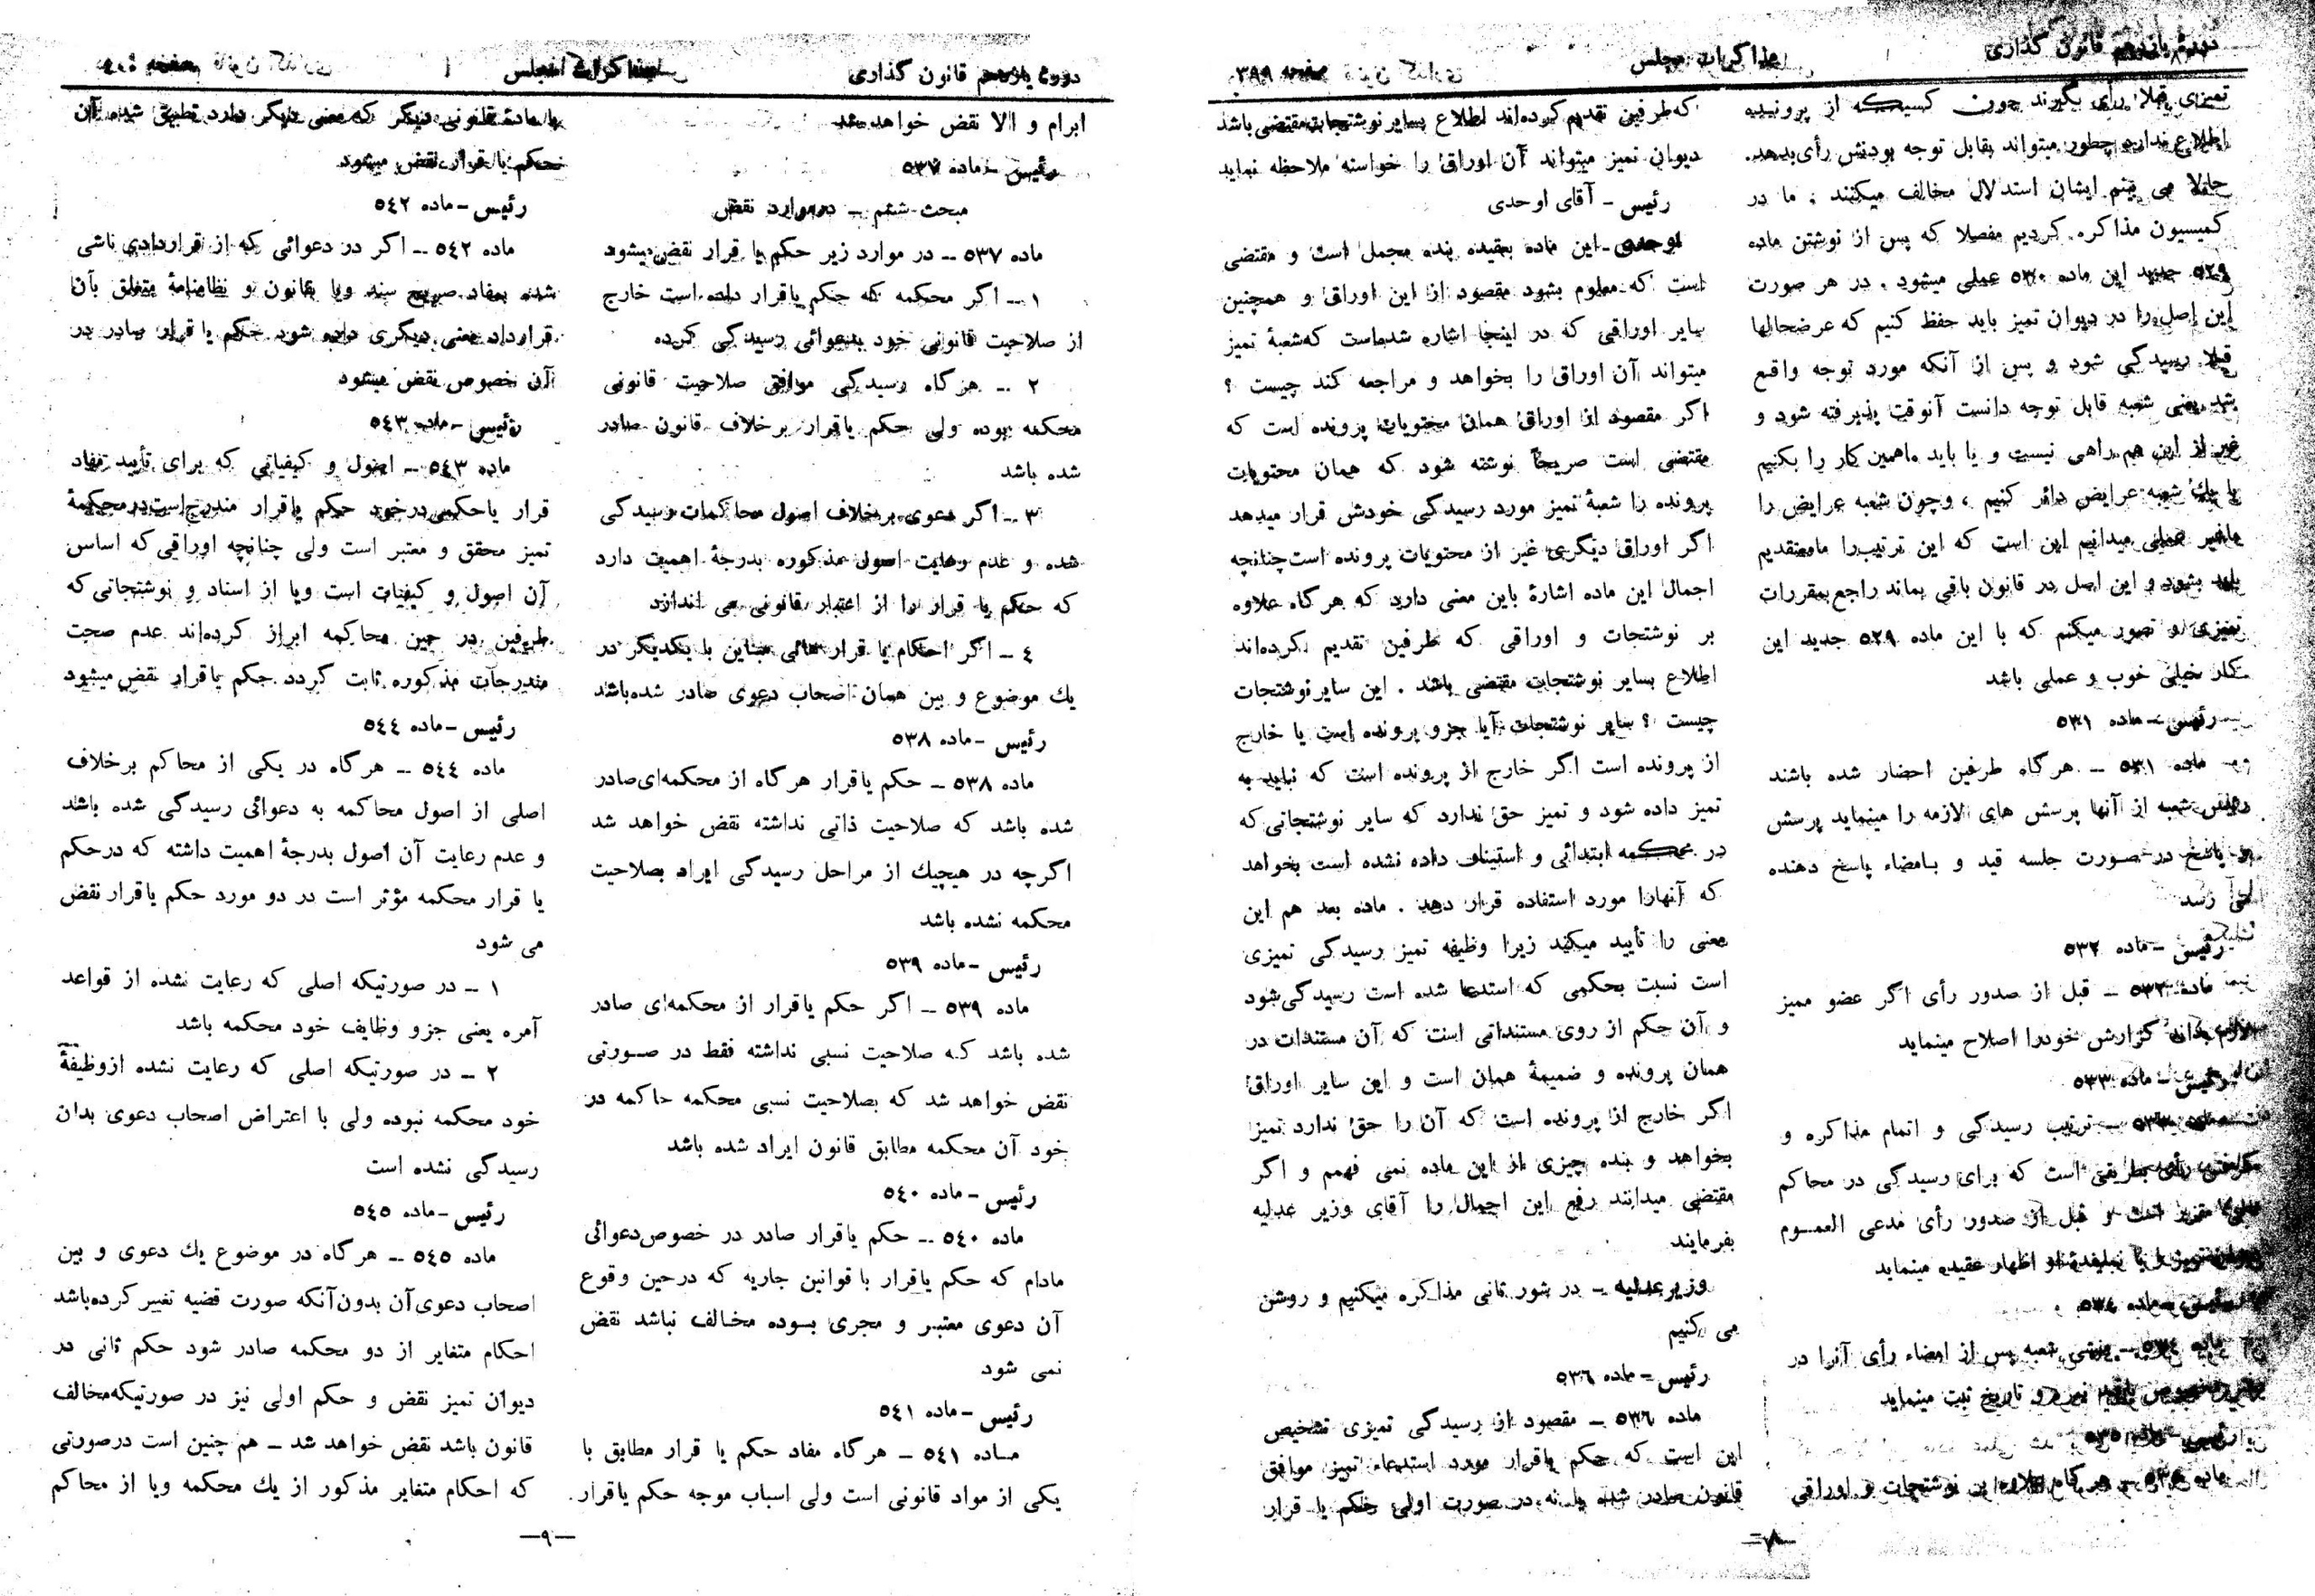 دورهٔ یازدهم قانون گذاری
مذاکرات مجلس
صفحه ۳۸۹
تمیزی قبلا رأی بگیرند چون کسیکه از پرونده
اطلاع ندارد چطور میتواند بقابل توجه بودنش رأی بدهد.
حالا می بینم ایشان استدلال مخالف میکنند ; ما در
کمیسیون مذاکره کردیم مفصلا که پس از نوشتن ماده
۵۲۹ جدید این ماده ۵۳۰ عملی میشود . در هر صورت
این اصل را در دیوان تمیز باید حفظ کنیم که عرضحالها
قبلا رسیدگی شود و پس از آنکه مورد توجه واقع
شد یعنی شعبه قابل توجه دانست آنوقت پذیرفته شود و
غیر از این هم راهی نیست و یا باید ماهمین کار را بکنیم
یا یك شعبه عرایض دائر کنیم ، وچون شعبه عرایض را
ماغیر عملی میدانیم این است که این ترتیب را مامعتقدیم
باید بشود و این اصل در قانون باقی بماند راجع بمقررات
تمیزی و تصور میکنم که با این ماده ۵۲۹ جدید این
کار خیلی خوب و عملی باشد
رئیس - ماده ۵۳۱
ماده ۵۳۱ ــ هرگاه طرفین احضار شده باشند
رئیس شعبه از آنها پرسش های لازمه را مینماید پرسش
و پاسخ در صورت جلسه قید و بامضاء پاسخ دهنده
می رسد
رئیس - ماده ۵۳۲
ماده ۵۳۲ ــ قبل از صدور رأی اگر عضو ممیز
لازم بداند گزارش خودرا اصلاح مینماید
رئیس - ماده ۵۳۳
ماده ۵۳۳ ــ ترتیب رسیدگی و اتمام مذاکره و
گرفتن رأی بطریقی است که برای رسیدگی در محاکم
مقرر است و قبل از صدور رأی مدعی العموم
دیوان تمیز یا نماینده او اظهار عقیده مینماید
رئیس - ماده ۵۳۴
ماده ۵۳۴ ــ منشی شعبه پس از امضاء رأی آنرا در
دفتر مخصوص باقید نمره و تاریخ ثبت مینماید
رئیس - ماده ۵۳۵
ماده ۵۳۵ ــ هرگاه علاوه بر نوشتجات و اوراقی
که طرفین تقدیم کرده‌اند اطلاع بسایر نوشتجات مقتضی باشد
دیوان تمیز میتواند آن اوراق را خواسته ملاحظه نماید
رئیس - آقای اوحدی
اوحدی - این ماده بعقیده بنده مجمل است و مقتضی
است که معلوم بشود مقصود از این اوراق و همچنین
سایر اوراقی که در اینجا اشاره شده‌است که‌شعبهٔ تمیز
میتواند آن اوراق را بخواهد و مراجعه کند چیست ؟
اگر مقصود از اوراق همان محتویات پرونده است که
مقتضی است صریحاً نوشته شود که همان محتویات
پرونده را شعبهٔ تمیز مورد رسیدگی خودش قرار میدهد
اگر اوراق دیگری غیر از محتویات پرونده است چنانچه
اجمال این ماده اشارهٔ باین معنی دارد که هرگاه علاوه
بر نوشتجات و اوراقی که طرفین تقدیم کرده‌اند
اطلاع بسایر نوشتجات مقتضی باشد . این سایر نوشتجات
چیست ؟ سایر نوشتجات آیا جزو پرونده است یا خارج
از پرونده است اگر خارج از پرونده است که نباید به
تمیز داده شود و تمیز حق ندارد که سایر نوشتجاتی که
در محکمه ابتدائی و استیناف داده نشده است بخواهد
که آنهارا مورد استفاده قرار دهد . ماده بعد هم این
معنی را تأیید میکند زیرا وظیفه تمیز رسیدگی تمیزی
است نسبت بحکمی که استدعا شده است رسیدگی شود
و آن حکم از روی مستنداتی است که آن مستندات در
همان پرونده و ضمیمهٔ همان است و این سایر اوراق
اگر خارج از پرونده است که آن را حق ندارد تمیز
بخواهد و بنده چیزی از این ماده نمی فهمم و اگر
مقتضی میدانند رفع این اجمال را آقای وزیر عدلیه
بفرمایند
وزیر عدلیه ـ در شور ثانی مذاکره میکنیم و روشن
می کنیم
رئیس - ماده ۵۳۶
ماده ۵۳۶ ــ مقصود از رسیدگی تمیزی تشخیص
این است که حکم یاقرار مورد استدعاء تمیز موافق
قانون صادر شده یا نه در صورت اولی حکم یا قرار
—۸—
دوره یازدهم قانون گذاری
مذاکرات مجلس
ابرام و الا نقض خواهد شد
رئیس - ماده ۵۳۷
مبحث ششم ــ در موارد نقض
ماده ۵۳۷ ــ در موارد زیر حکم یا قرار نقض میشود
۱ ــ اگر محکمه که حکم یاقرار داده است خارج
از صلاحیت قانونی خود بدعوائی رسیدگی کرده
۲ ــ هرگاه رسیدگی موافق صلاحیت قانونی
محکمه بوده ولی حکم یاقرار برخلاف قانون صادر
شده باشد
۳ ــ اگر دعوی برخلاف اصول محاکمات رسیدگی
شده و عدم رعایت اصول مذکوره بدرجهٔ اهمیت دارد
که حکم یا قرار را از اعتبار قانونی می اندازد
٤ ــ اگر احکام یا قرار هائی مباین با یکدیگر در
یك موضوع و بین همان اصحاب دعوی صادر شده‌باشد
رئیس - ماده ۵۳۸
ماده ۵۳۸ ــ حکم یاقرار هرگاه از محکمه‌ای‌صادر
شده باشد که صلاحیت ذاتی نداشته نقض خواهد شد
اگرچه در هیچیك از مراحل رسیدگی ایراد بصلاحیت
محکمه نشده باشد
رئیس - ماده ۵۳۹
ماده ۵۳۹ ــ اگر حکم یاقرار از محکمه‌ای صادر
شده باشد که صلاحیت نسبی نداشته فقط در صورتی
نقض خواهد شد که بصلاحیت نسبی محکمه حاکمه در
خود آن محکمه مطابق قانون ایراد شده باشد
رئیس - ماده ۵٤۰
ماده ۵٤۰ ــ حکم یاقرار صادر در خصوص‌دعوائی
مادام که حکم یاقرار با قوانین جاریه که درحین وقوع
آن دعوی معتبر و مجری بوده مخالف نباشد نقض
نمی شود
رئیس - ماده ۵٤۱
ماده ۵٤۱ ــ هرگاه مفاد حکم یا قرار مطابق با
یکی از مواد قانونی است ولی اسباب موجه حکم یاقرار
با مادهٔ قانونی دیگر که معنی دیگر دارد تطبیق شده آن
حکم یا قرار نقض میشود
رئیس - ماده ۵٤۲
ماده ۵٤۲ ــ اگر در دعوائی که از قراردادی ناشی
شده بمفاد صریح سند ویا بقانون و نظامنامهٔ متعلق بآن
قرارداد معنی دیگری داده شود حکم یا قرار صادر در
آن خصوص نقض میشود
رئیس - ماده ۵٤۳
ماده ۵٤۳ ــ اصول و کیفیاتی که برای تأیید مفاد
قرار یاحکمی درخود حکم یاقرار مندرج است درمحکمهٔ
تمیز محقق و معتبر است ولی چنانچه اوراقی که اساس
آن اصول و کیفیات است ویا از اسناد و نوشتجاتی که
طرفین در حین محاکمه ابراز کرده‌اند عدم صحت
مندرجات مذکوره ثابت گردد حکم یاقرار نقض میشود
رئیس - ماده ۵٤٤
ماده ۵٤٤ ــ هرگاه در یکی از محاکم برخلاف
اصلی از اصول محاکمه به دعوائی رسیدگی شده باشد
و عدم رعایت آن اصول بدرجهٔ اهمیت داشته که درحکم
یا قرار محکمه مؤثر است در دو مورد حکم یاقرار نقض
می شود
۱ ــ در صورتیکه اصلی که رعایت نشده از قواعد
آمره یعنی جزو وظایف خود محکمه باشد
۲ ــ در صورتیکه اصلی که رعایت نشده ازوظیفهٔ
خود محکمه نبوده ولی با اعتراض اصحاب دعوی بدان
رسیدگی نشده است
رئیس - ماده ۵٤۵
ماده ۵٤۵ ــ هرگاه در موضوع یك دعوی و بین
اصحاب دعوی‌آن بدون‌آنکه صورت قضیه تغییر کرده‌باشد
احکام متغایر از دو محکمه صادر شود حکم ثانی در
دیوان تمیز نقض و حکم اولی نیز در صورتیکه‌مخالف
قانون باشد نقض خواهد شد ــ هم چنین است درصورتی
که احکام متغایر مذکور از یك محکمه ویا از محاکم
—۹—